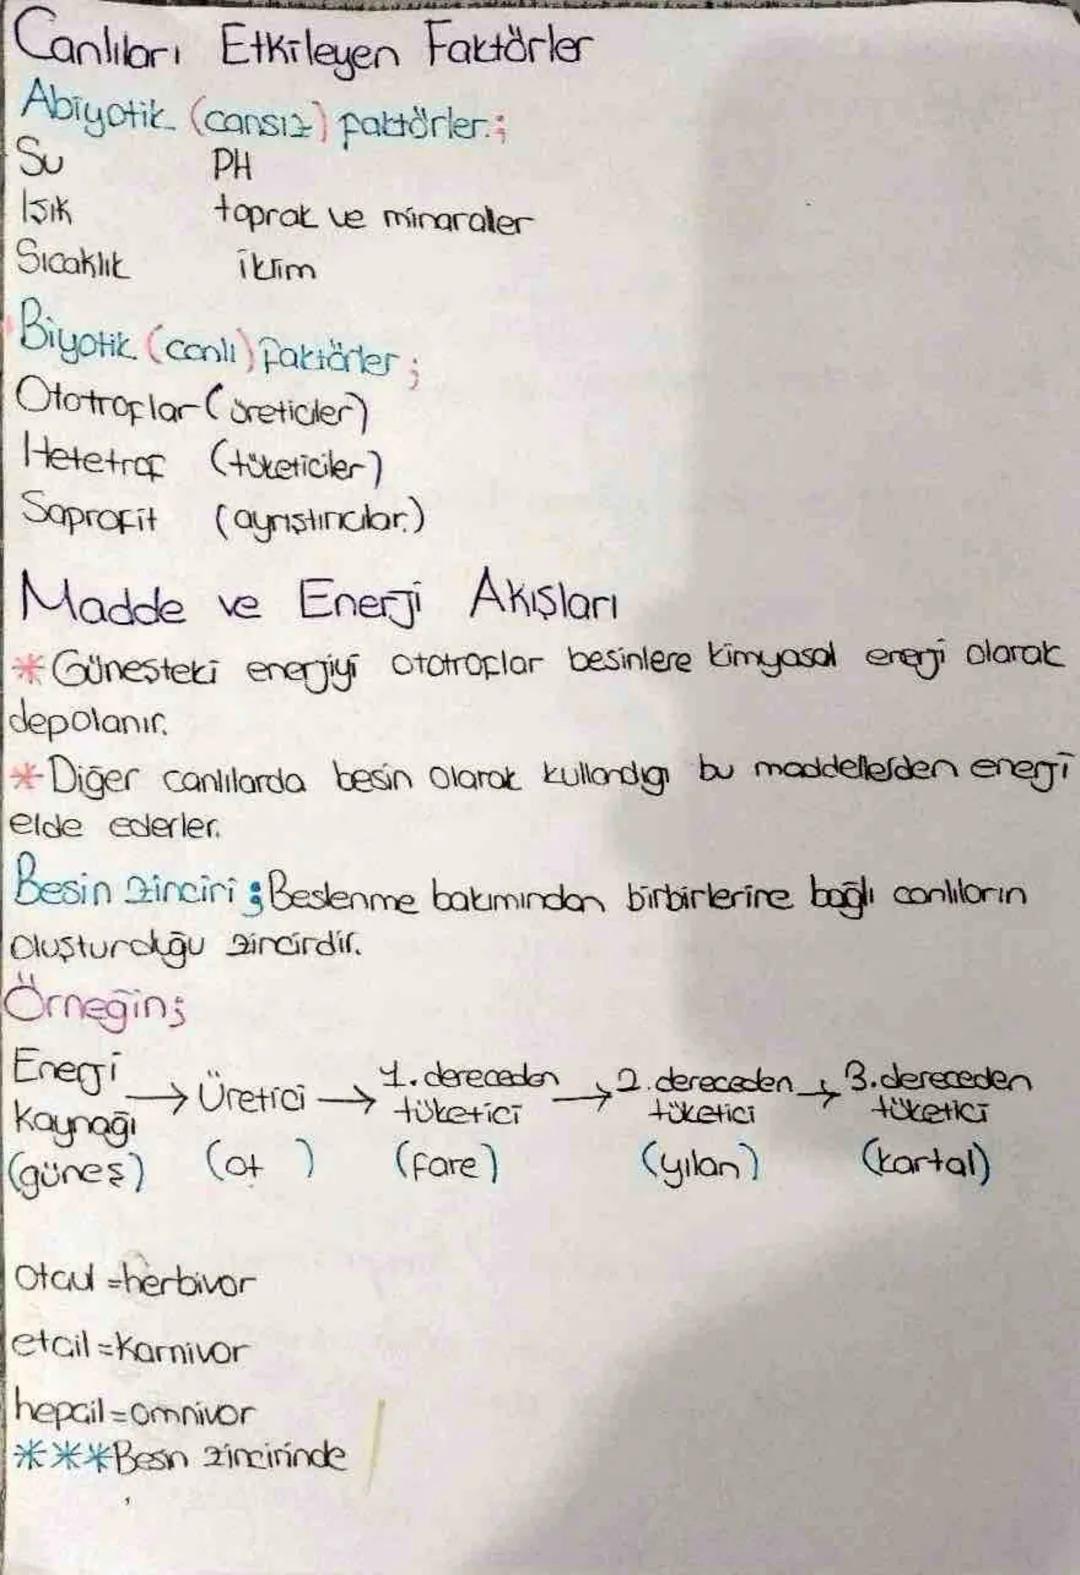 Canlıları Etkileyen Faktörler
Abiyotik (cansız) faktörler;
Su PH
Işık toprak ve minaraller
Sıcaklık iklim
Biyotik (canlı) faktörler;
Ototroflar (üreticiler)
Hetetrof (tüketiciler)
Saprofit (ayrıştırıcılar)
Madde ve Enerji Akışları
*Güneşteki enerjiyi ototroflar besinlere kimyasal enerji olarak
depolanır.
*Diğer canlılarda besin olarak kullandığı bu maddellerden enerji
elde ederler.
Besin zinciri; Beslenme bakımından birbirlerine bağlı canlıların
oluşturduğu zincirdir.
Örneğin;
Enerji Kaynağı → Üretici → 1.dereceden tüketici → 2.dereceden tüketici → 3.dereceden tüketici
(güneş) (ot ) (fare) (yılan) (kartal)
otçul =herbivor
etçil =Karnivor
hepçil =omnivor
***Besin zincirinde